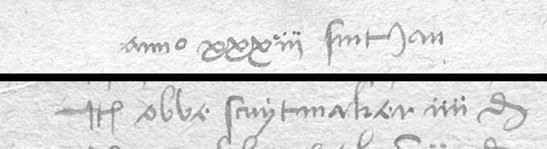 anno xxxiii sint Jan
It obbe scuytmaker iiii d